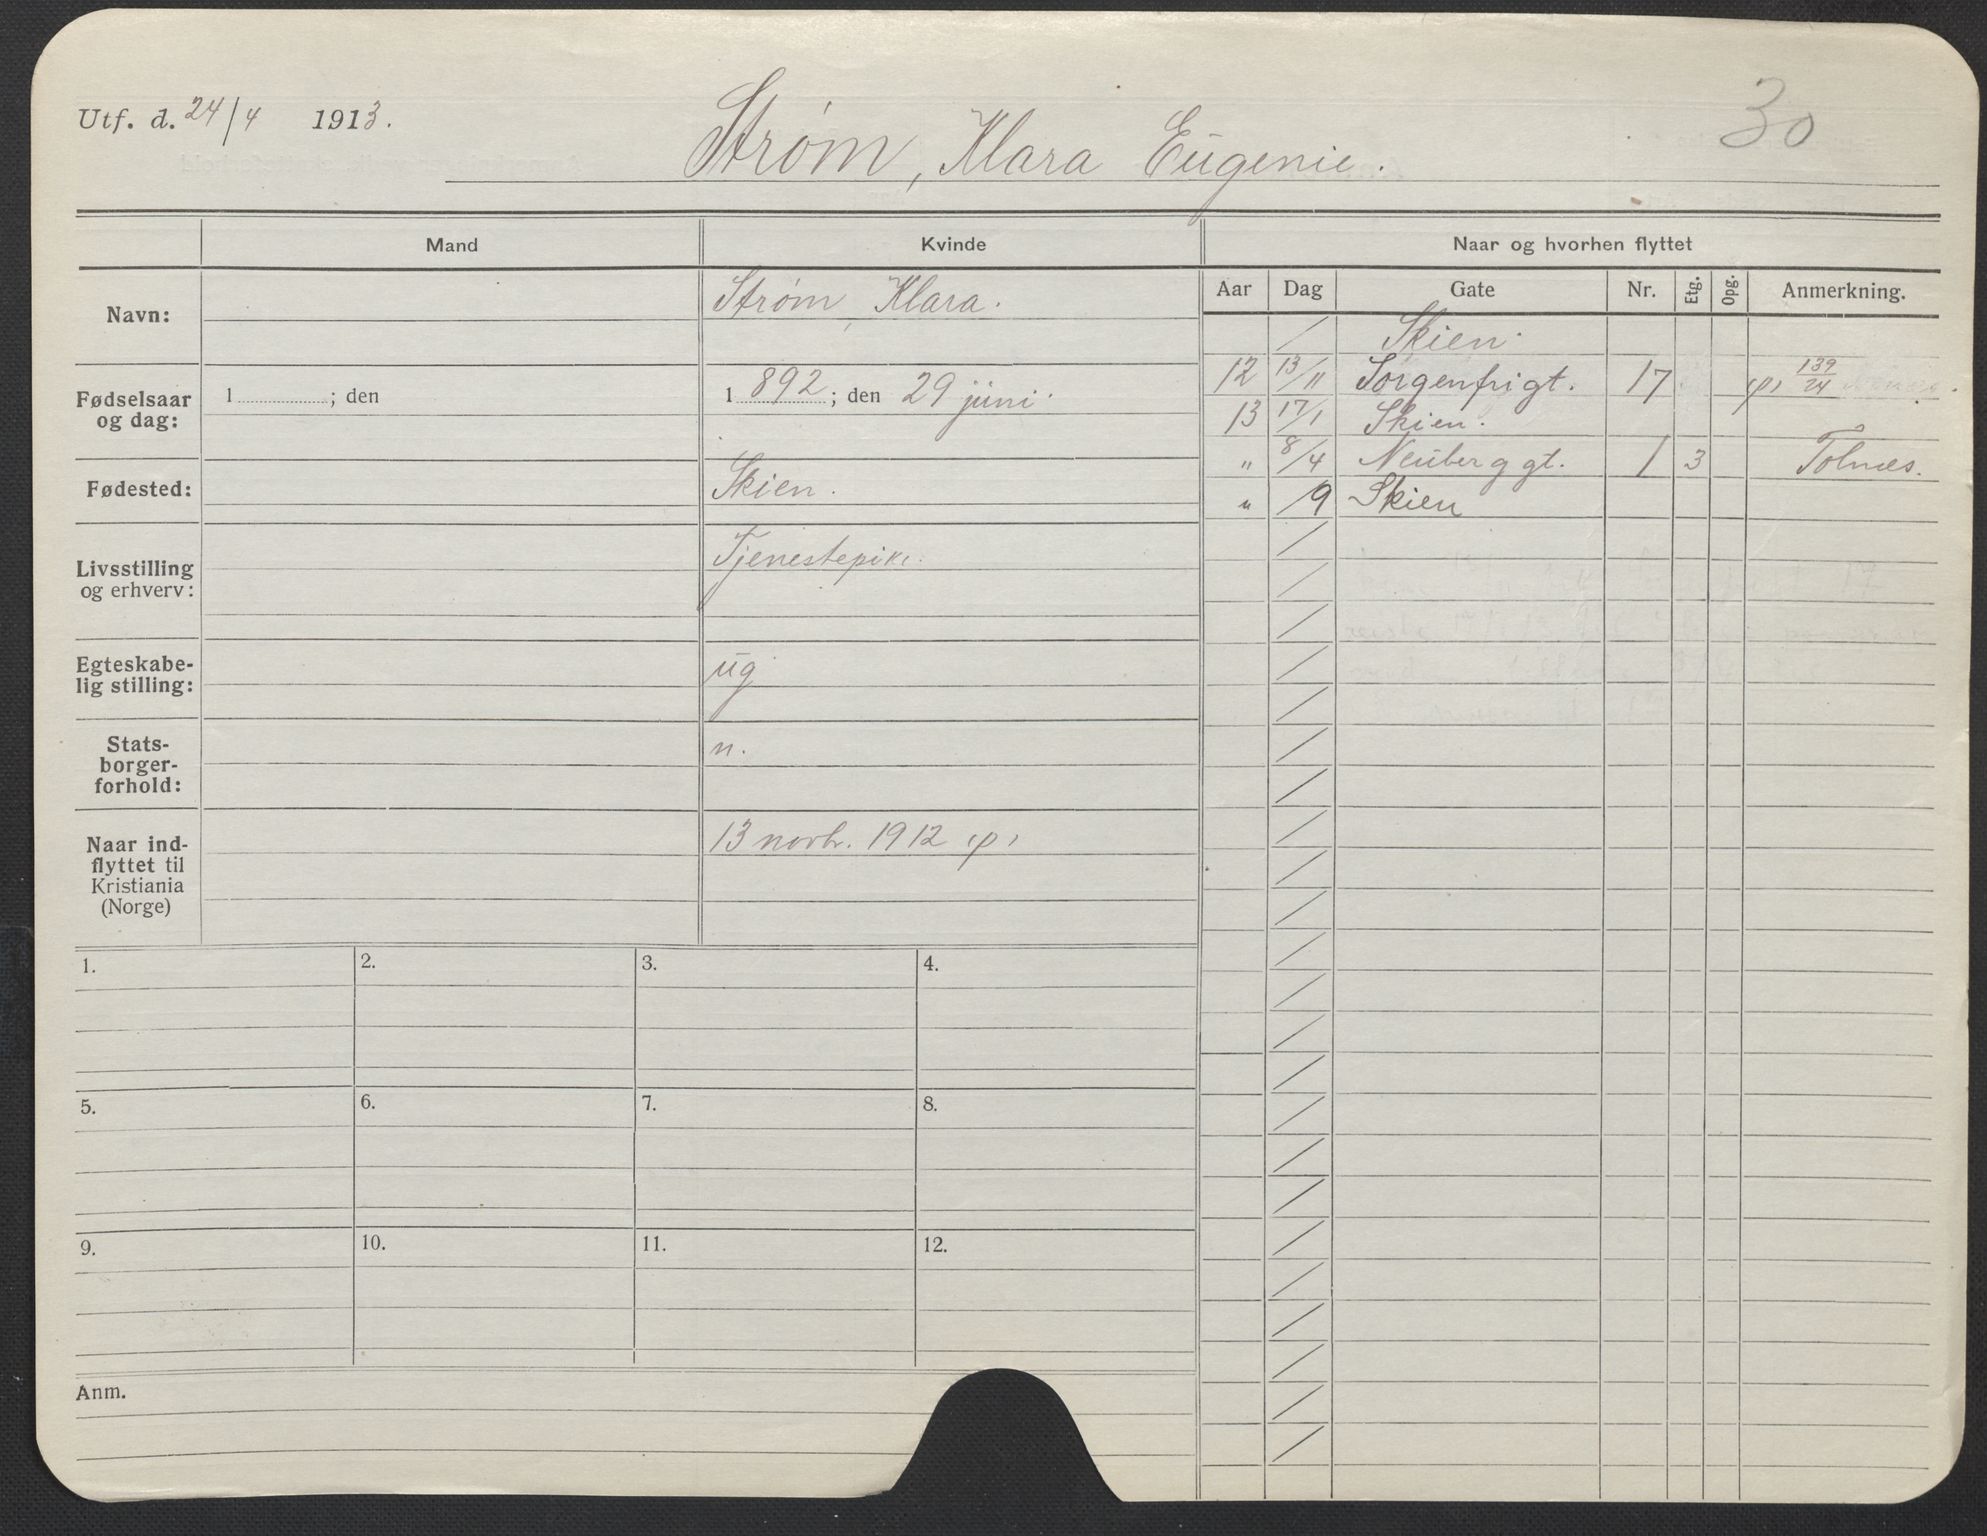 Utf. d. 24/4 1913.
Strøm, Klara Eugenie.
30
Mand
Kvinde
Naar og hvorhen flyttet
Navn:
Strøm, Klara.
Fødselsaar og dag:
1 ; den
1892; den 29 juni.
Fødested:
Skien.
Livsstilling og erhverv:
Tjenestepike.
Egteskabe-
lig stilling:
ug
Stats-
borger-
forhold:
n.
Naar ind-
flyttet til
Kristiania
(Norge)
13 novbr. 1912
Aar Dag Gate Nr. Etg. Opg. Anmerkning.
/ Skien.
12 13/11 Sorgenfrigt. 17 139/24
13 17/1 Skien.
" 8/4 Neuberggt. 1 3 Tolnæs.
" /9 Skien
1. 2. 3. 4.
5. 6. 7. 8.
9. 10. 11. 12.
Anm.